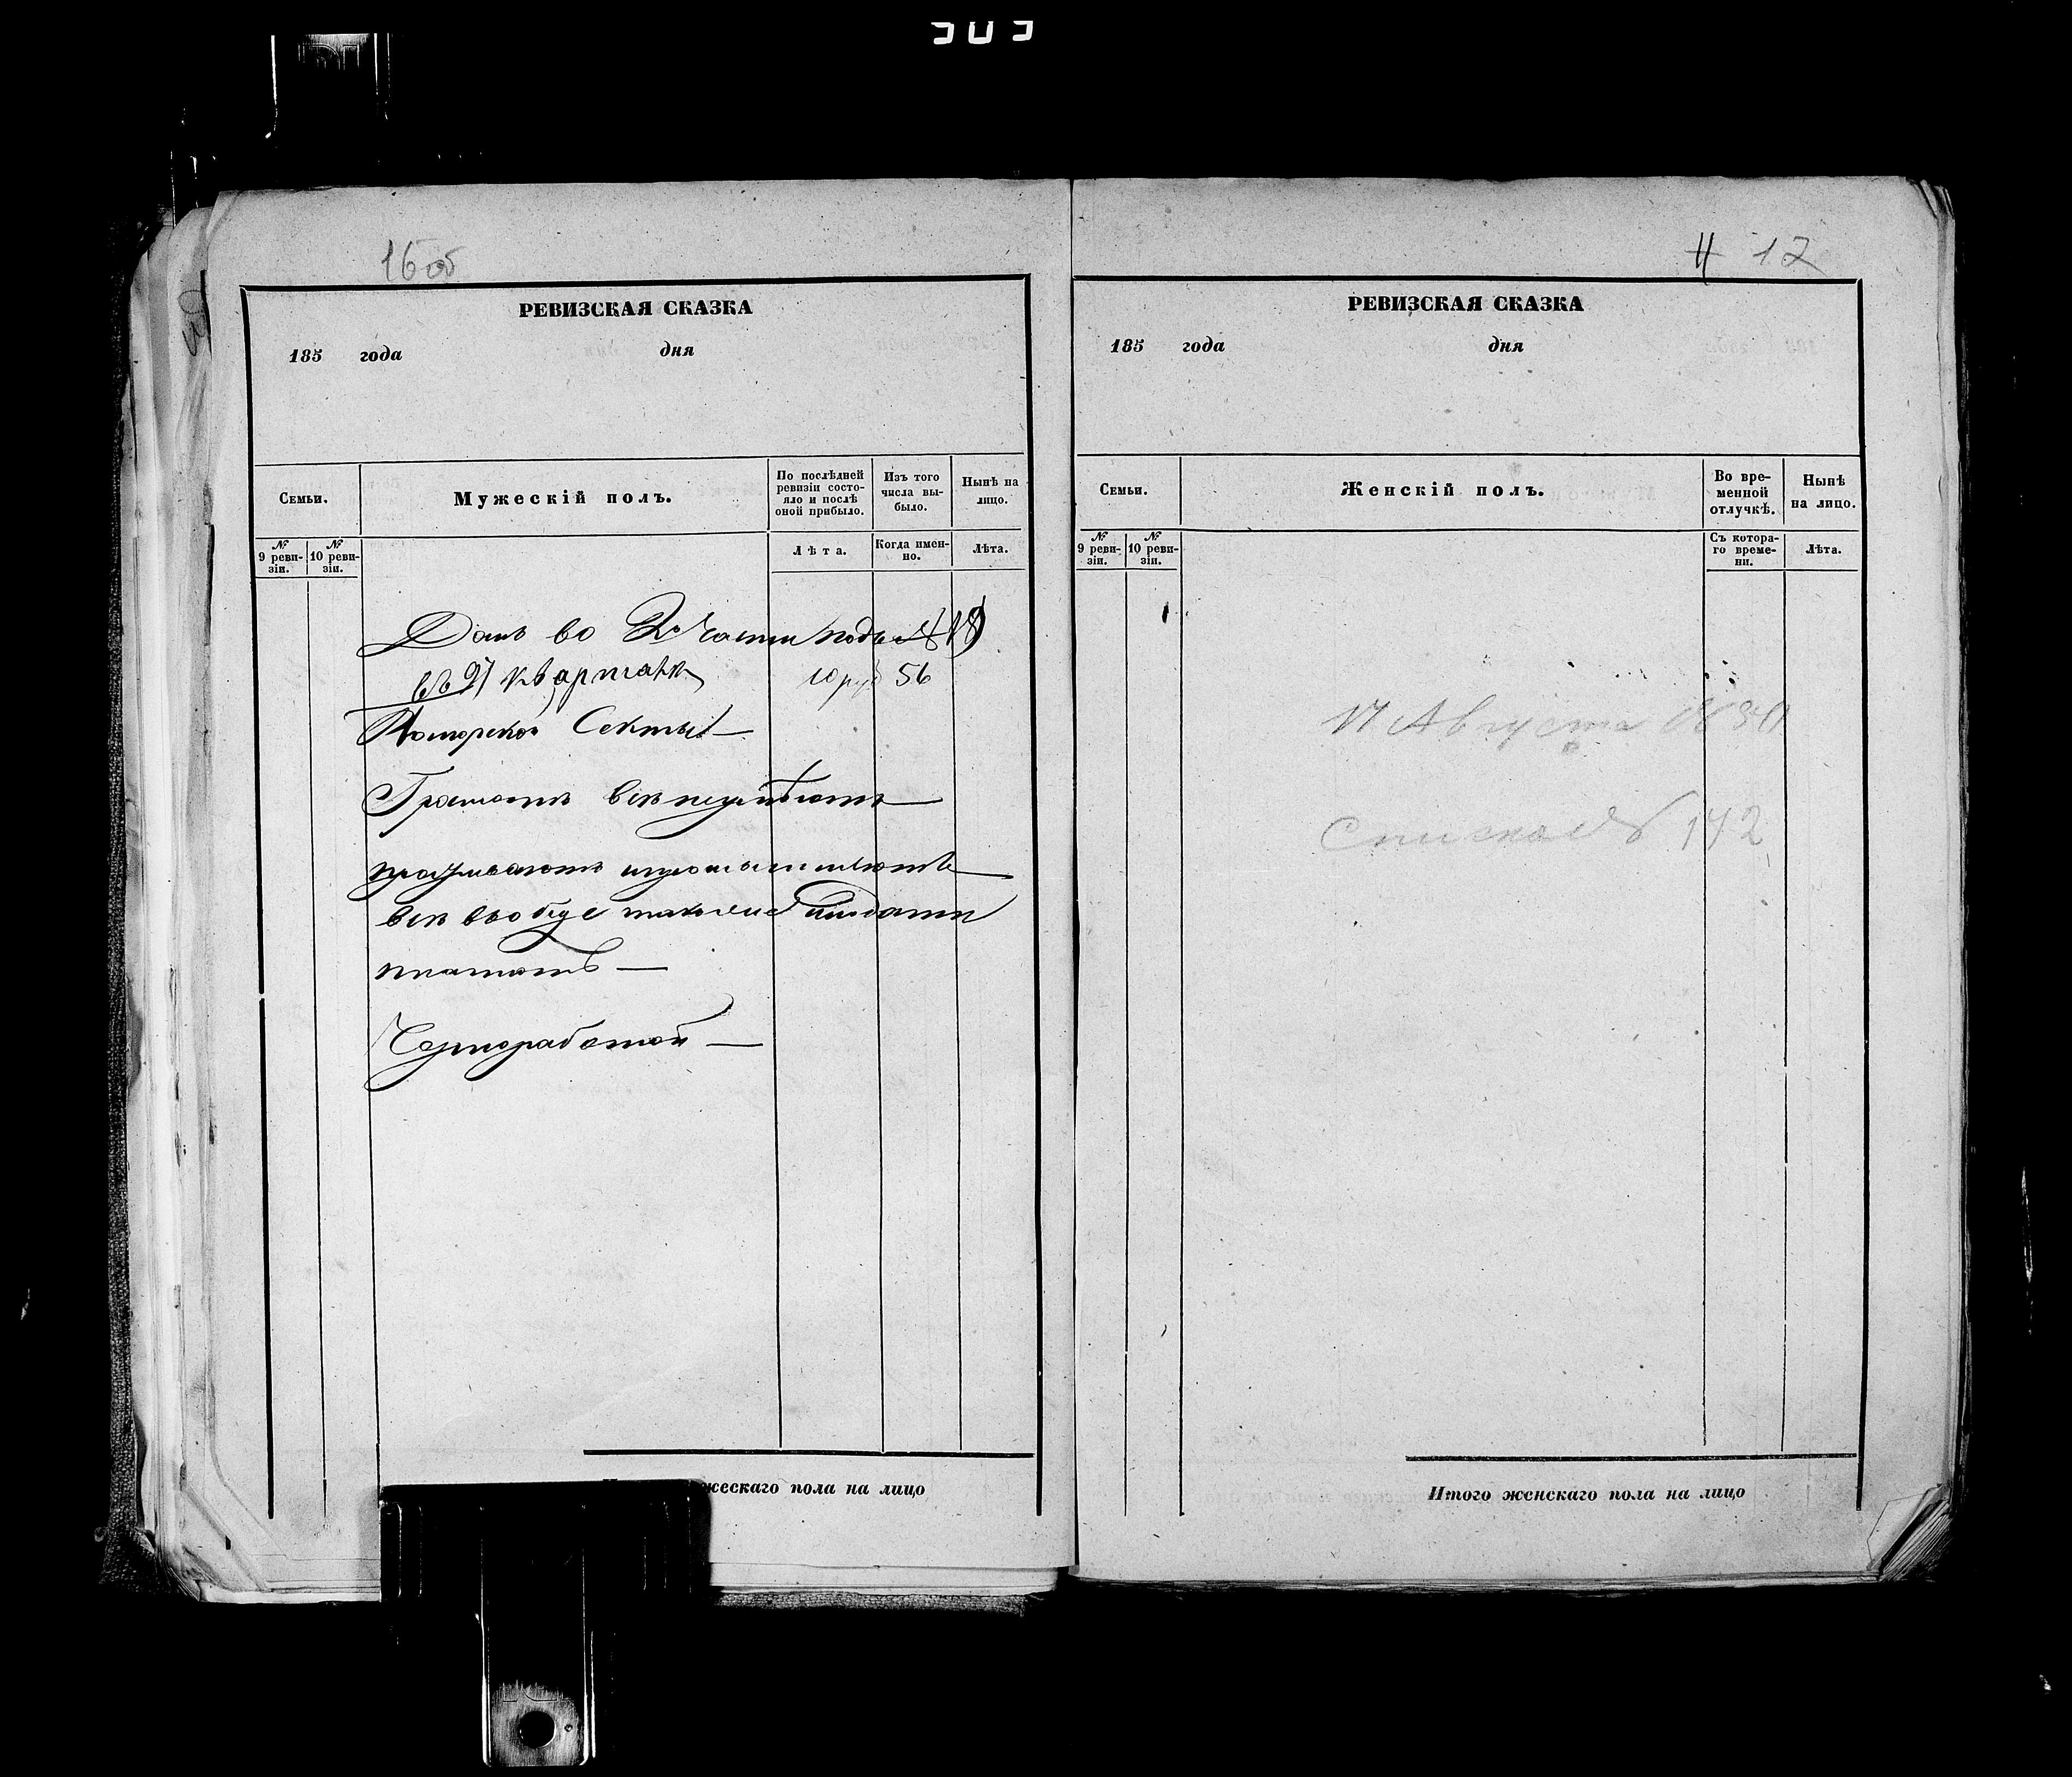 505
16 об
РЕВИЗСКАЯ СКАЗКА
185 года дня
Семьи. Мужескій полъ. По послѣдней ревизіи состояло и послѣ оной прибыло. Изъ того числа выбыло. Нынѣ на лицо.
№ 9 ревизіи. № 10 ревизіи. Лѣта. Когда именно. Лѣта.
Домъ во 2й Части подъ №
въ кварталѣ 10 руб 56
Поморской Секты
Грамотѣ всѣ неумѣютъ
проживаютъ
всѣ вообще подати
платятъ
Чорноработой
мужескаго пола на лицо
17
РЕВИЗСКАЯ СКАЗКА
185 года дня
Семьи. Женскій полъ. Во временной отлучкѣ. Нынѣ на лицо.
№ 9 ревизіи. № 10 ревизіи. Съ котораго времени. Лѣта.
17 Августа
Списка № 142
Итого женскаго пола на лицо